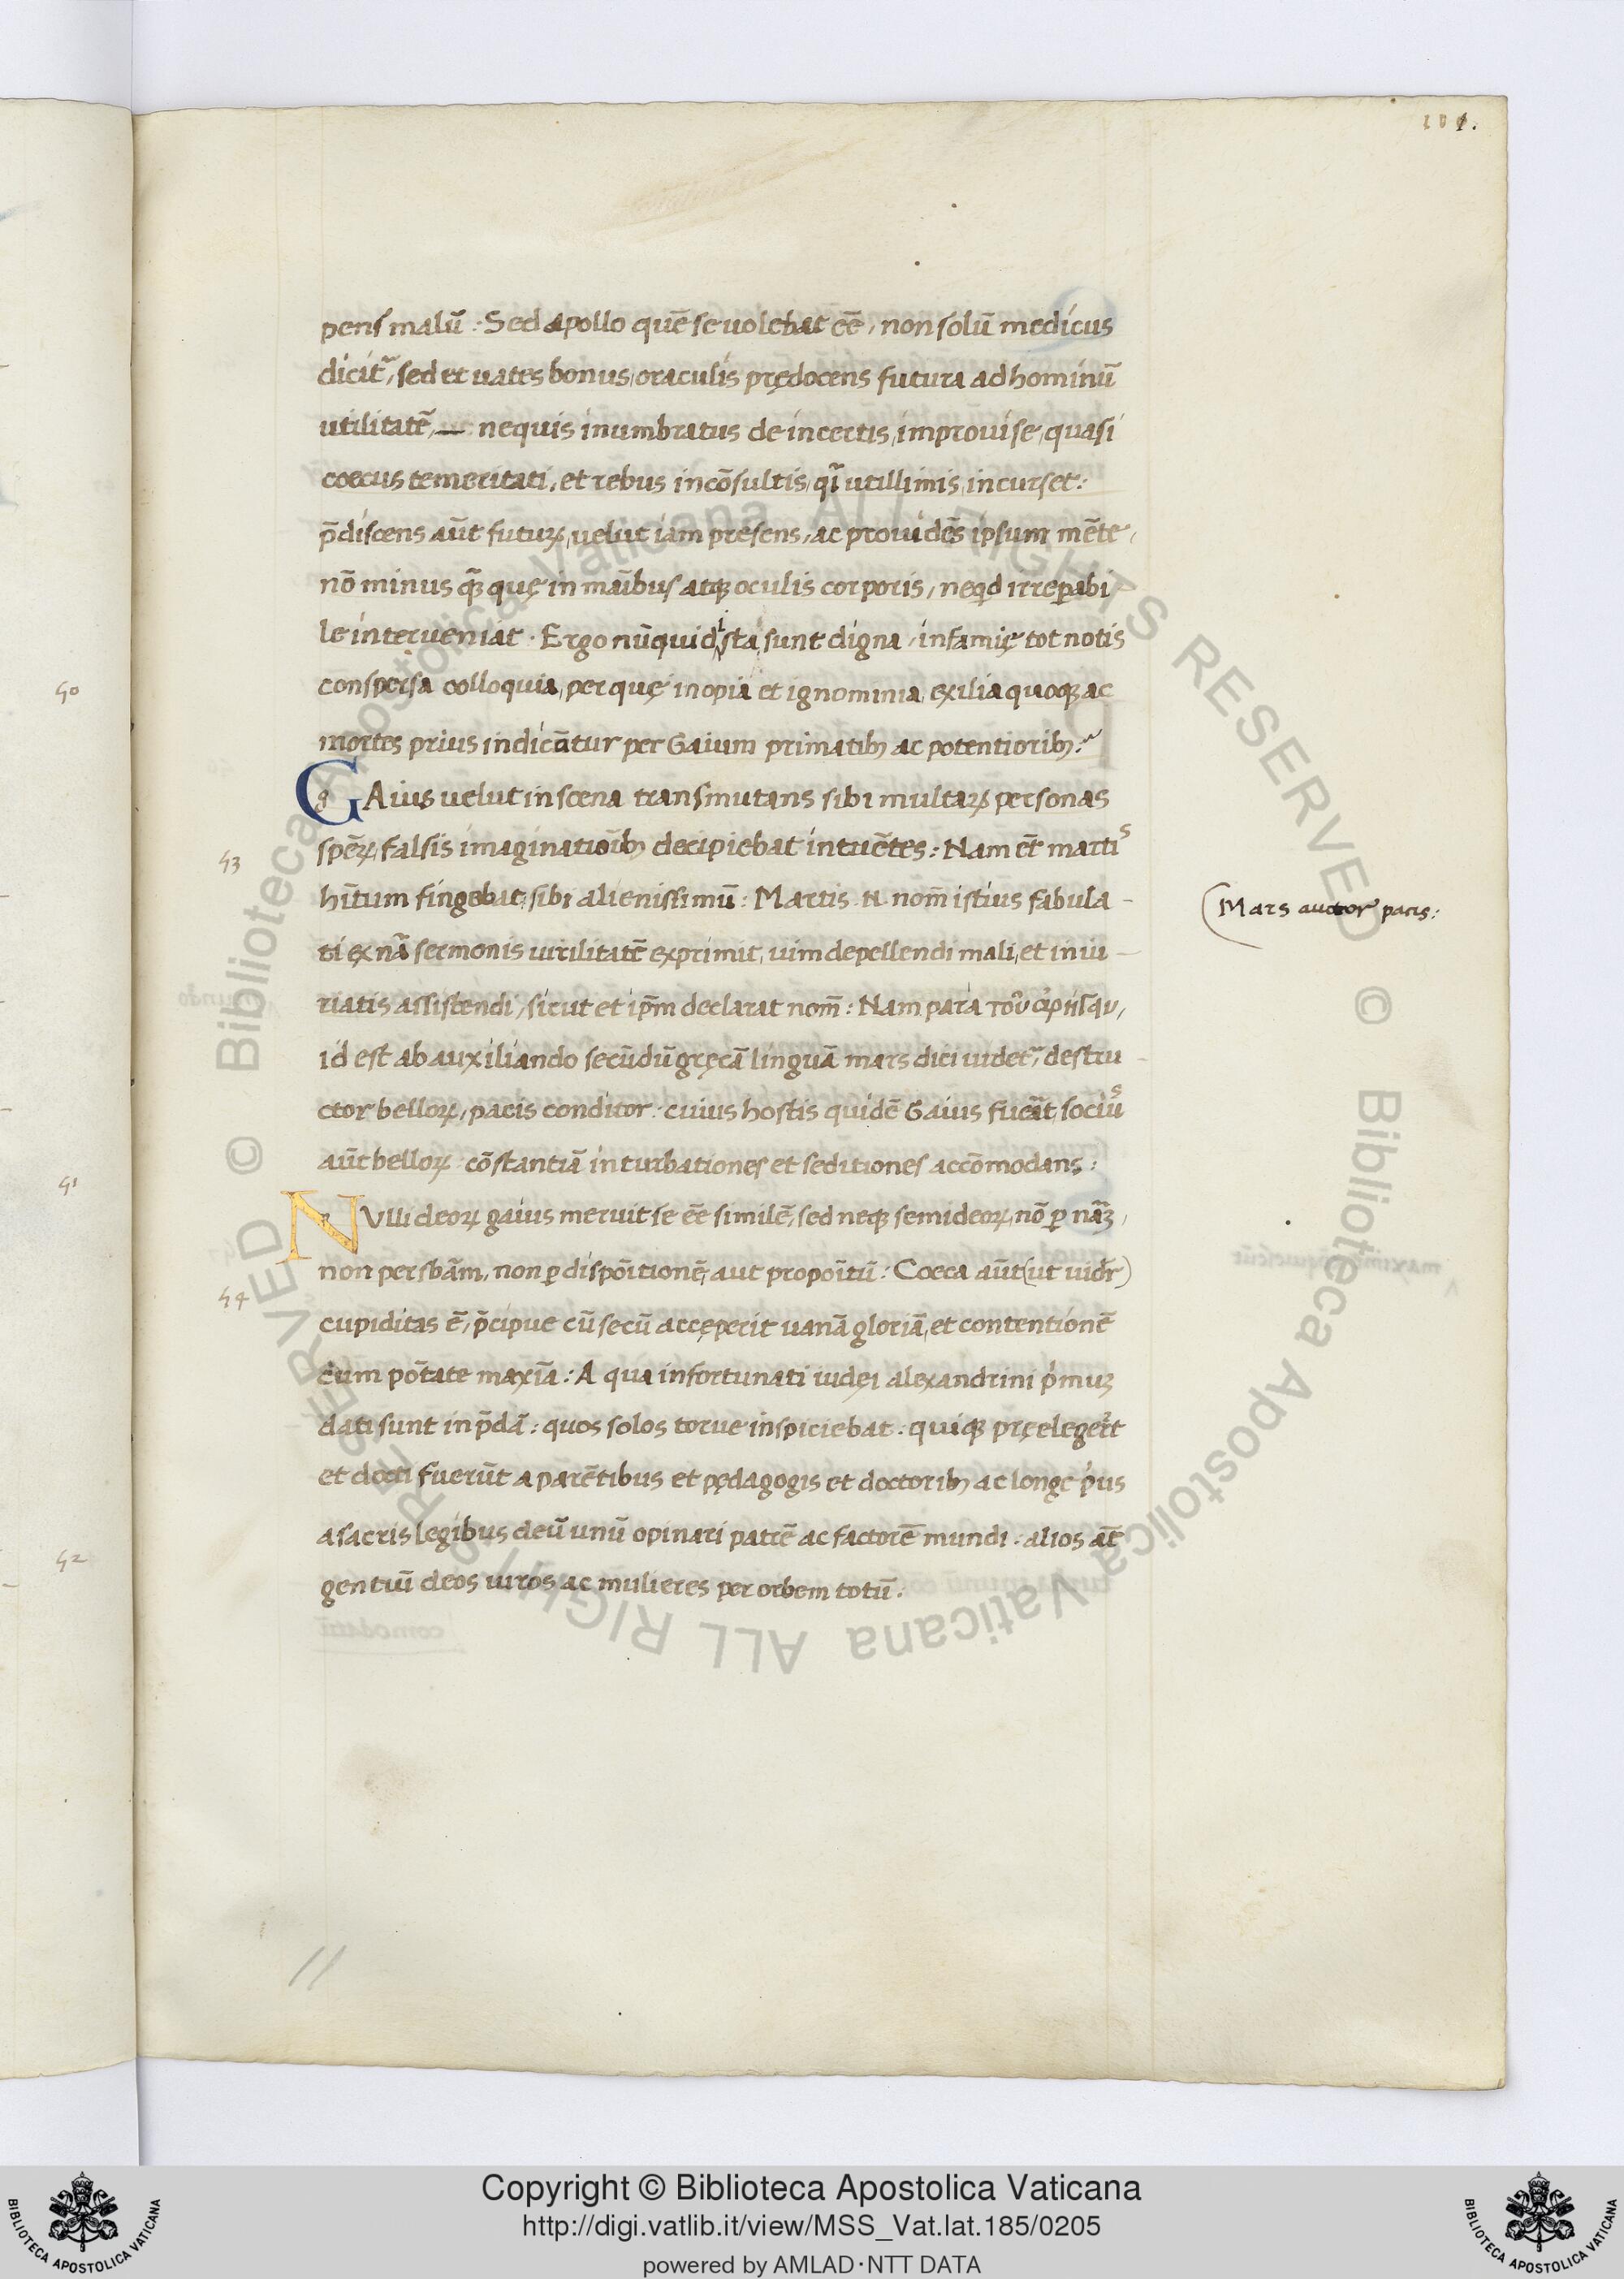 101.
pens malū : Sed apollo quē se uolebat eē, non solū medicus
dicit᷈, sed et uates bonus, oraculis prędocens futura ad hominū
utilitatē, — nequis inumbratus de incertis, improuise, quasi
coecus temeritati, et rebus incōsultis, qͥ utillimis, incurset :
p̄discens aūt futuꝝ, uelut iam presens, ac prouidēs ipsum mēte,
nō minus qͣ̄ quę in maībus atqꝫ oculis corporis, neqͥd irrepabi
le interueniat . Ergo nūquid ista sunt digna, infamię tot notis
conspersa colloquia, per quę inopia et ignominia, exilia quoqꝫ ac
mortes prius indicātur per Gaium primatibꝫ ac potentioribꝫ :
GAius uelut in scena transmutans sibi multaꝝ personas
spēꝝ, falsis imaginatioībꝫ decipiebat intuētes : Nam ēt martis
hītum fingebat sibi alienissimū : Martis .n. nom̄ istius fabula –
ti ex nā sermonis uirilitatē exprimit, uim depellendi mali, et iniu –
riatis assistendi, sicut et ip̄m declarat nom̄ : Nam para τοῦ ἀρήγειν,
id est ab auxiliando secūdū gręcā linguā mars dici uidet᷈, destru –
ctor belloꝝ, pacis conditor : cuius hostis quidē Gaius fuerat, socius
aūt belloꝝ cōstantiā in turbationes et seditiones accōmodans :
NVlli deoꝝ gaius meruit se eē similē, sed neqꝫ semideoꝝ, nō ꝑ nāꝫ,
non per sbām, non ꝑ dispōitionē, aut propoītū : Coeca aūt (ut uidr̄)
cupiditas ē, p̄cipue cū secū acceperit uanā gloriā, et contentionē
cum pōtate maxīa : A qua infortunati iudęi alexandrini pͥmuꝫ
dati sunt in p̄dā : quos solos torue inspiciebat : quiqꝫ pręelegert
et docti fuerūt a parētibus et pędagogis et doctoribꝫ ac longe pͥus
a sacris legibus deū unū opinari patrē ac factorē mundi : alios at̄
gentiū deos uiros ac mulieres per orbem totū :
Mars auctor pacis :
40
43
41
44
42
Copyright © Biblioteca Apostolica Vaticana
http://digi.vatlib.it/view/MSS_Vat.lat.185/0205
powered by AMLAD·NTT DATA
BIBLIOTECA APOSTOLICA VATICANA
BIBLIOTECA APOSTOLICA VATICANA
© Biblioteca Apostolica Vaticana ALL RIGHTS RESERVED © Biblioteca Apostolica Vaticana ALL RIGHTS RESERVED